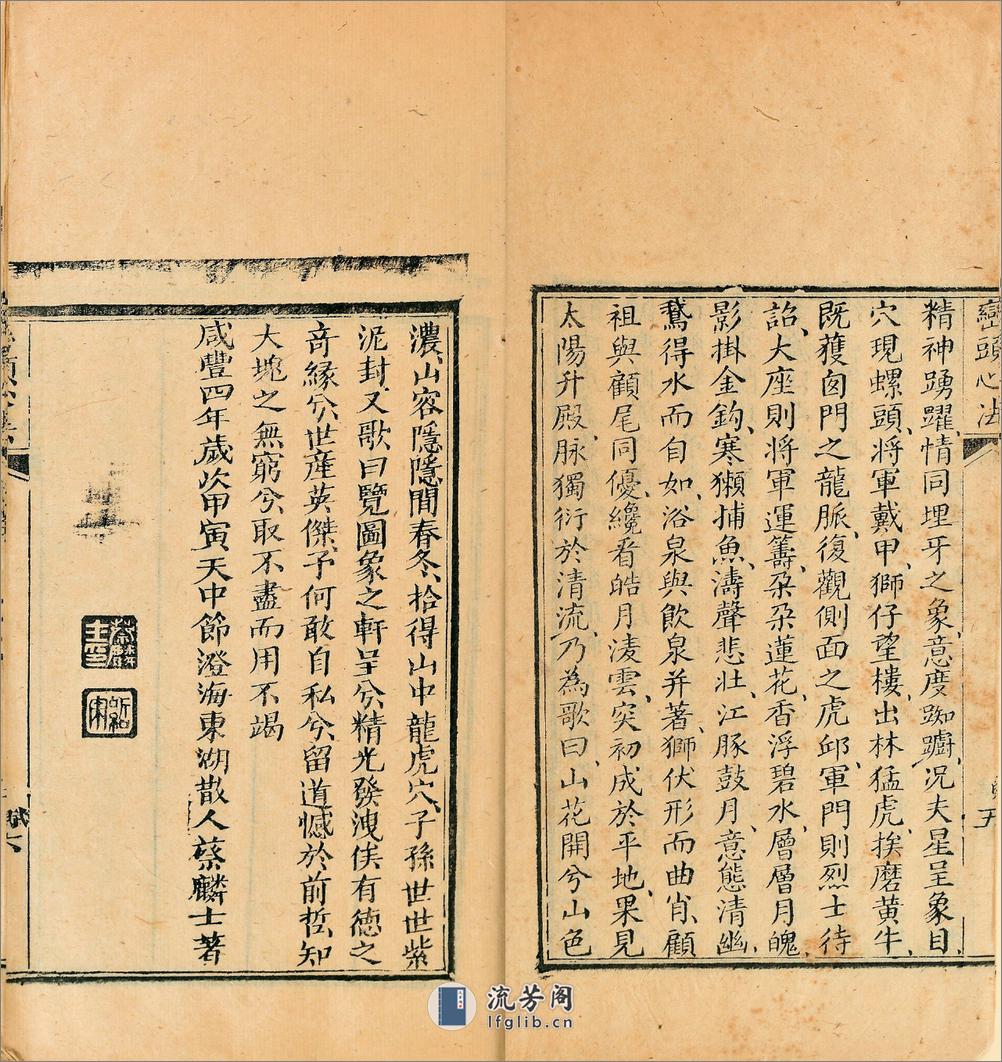 巒頭心法
精神踴躍情同埋牙之象意度踟躕况夫星呈象目
穴現螺頭將軍戴甲獅仔望樓出林猛虎挨磨黃牛
既獲囱門之龍脈復觀側面之虎邱軍門則烈士待
詔大座則將軍運籌朶朶蓮花香浮碧水層層月魄
影掛金鈎寒獺捕魚濤聲悲壯江豚鼓月意態清幽
鵞得水而自如浴泉與飲泉并著獅伏形而曲肖顧
祖與顧尾同優纔看皓月淩雲突初成於平地果見
太陽升殿脉獨衍於清流乃為歌曰山花開兮山色
濃山容隱隱間春冬拾得山中龍虎穴子孫世世紫
泥封又歌曰覽圖象之軒呈兮精光發洩俟有德之
奇緣兮世産英傑予何敢自私兮留道憾於前哲知
大塊之無窮兮取不盡而用不竭
咸豐四年歲次甲寅天中節澄海東湖散人蔡麟士著
賦六
流芳阁
lfglib.cn